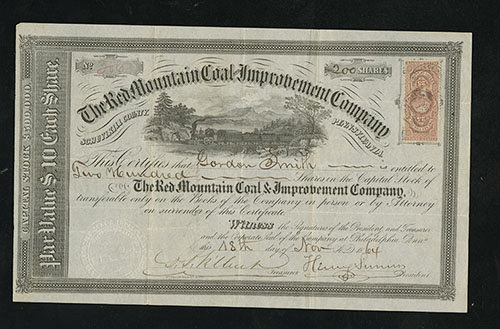 No
200 SHARES
The Red Mountain Coal Improvement Company
SCHUYLKILL COUNTY, PENNSYLVANIA.
CAPITAL STOCK $500,000.
Par Value $10 Each Share
This Certifies that Gordon Smith is entitled to
Two Hundred Shares in the Capital Stock of
The Red Mountain Coal & Improvement Company,
transferable only on the Books of the Company in person or by Attorney
on surrender of this Certificate
WITNESS the Signatures of the President and Treasurer
and the Corporate Seal of the Company at Philadelphia
this 18th day of Nov A.D. 1864
Treasurer
President